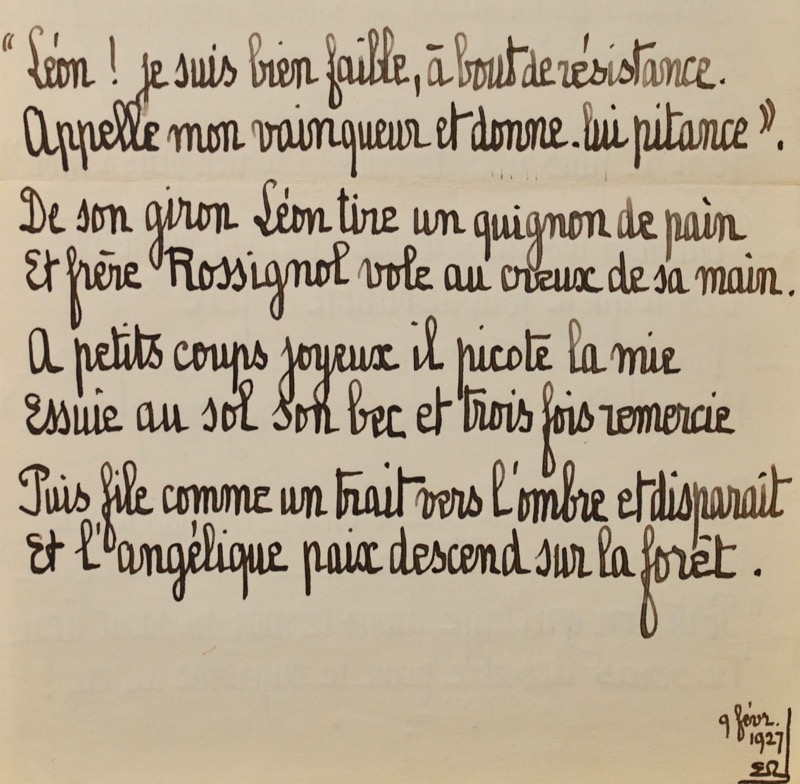 “Léon ! je suis bien faible, à bout de résistance.
Appelle mon vainqueur et donne-lui pitance”.
De son giron Léon tire un quignon de pain
Et frère Rossignol vole au creux de sa main.
A petits coups joyeux il picote la mie
Essuie au sol son bec et trois fois remercie
Puis file comme un trait vers l'ombre et disparaît
Et l'angélique paix descend sur la forêt.
9 févr.
1927